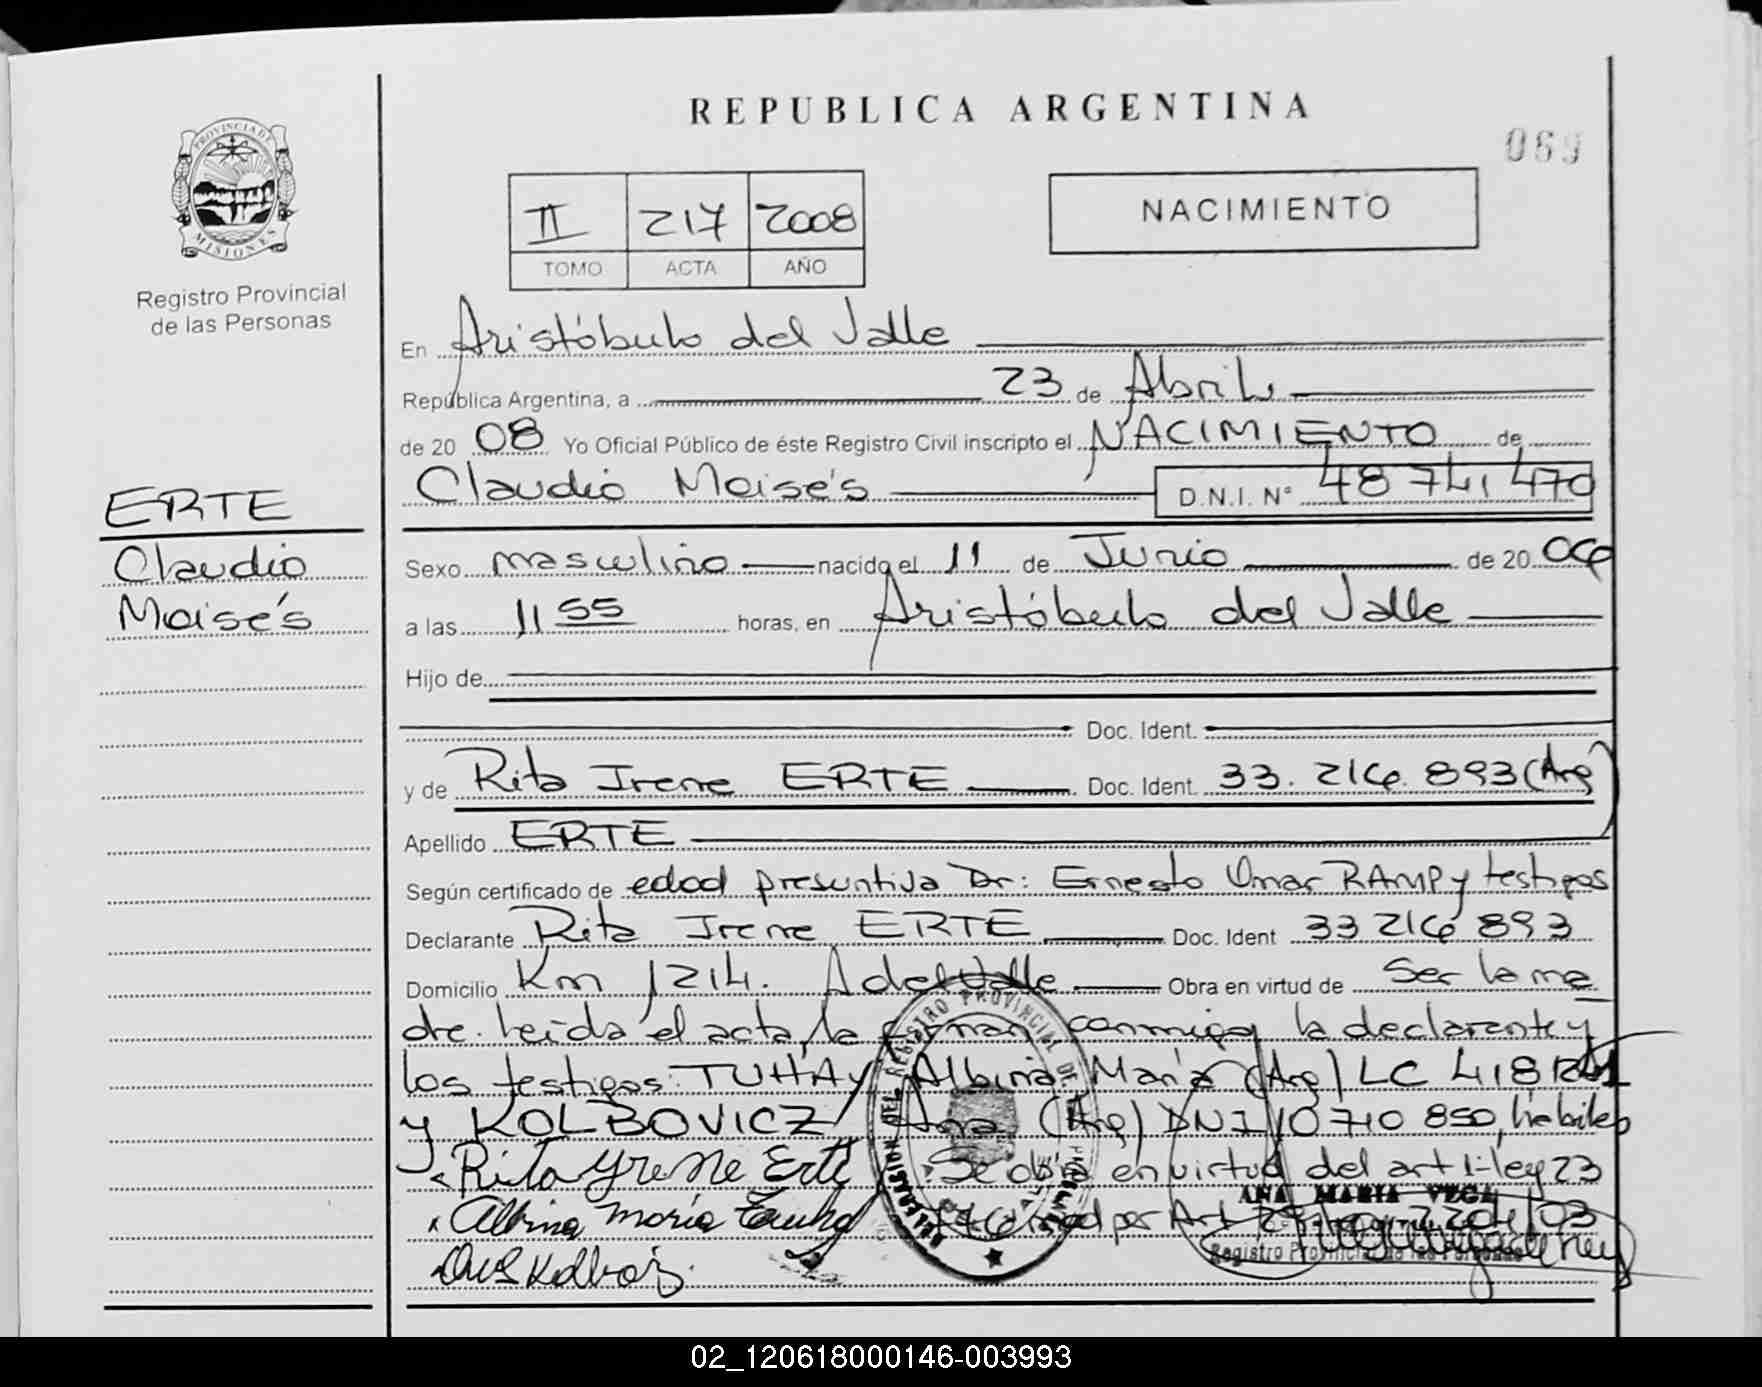 REPUBLICA ARGENTINA
069
PROVINCIA DE MISIONES
Registro Provincial
de las Personas
II 217 2008
TOMO ACTA AÑO
NACIMIENTO
En Aristóbulo del Valle
República Argentina, a 23 de Abril
de 20 08 Yo Oficial Público de éste Registro Civil inscripto el NACIMIENTO de
Claudio Moisés D.N.I. N° 48 741 470
ERTE
Claudio
Moisés
Sexo masculino nacido el 11 de Junio de 20 06
a las 11 55 horas, en Aristóbulo del Valle
Hijo de
Doc. Ident.
y de Rita Irene ERTE Doc. Ident. 33.216.893 (Arg)
Apellido ERTE
Según certificado de edad presuntiva Dr: Ernesto Omar RAMP y testigos
Declarante Rita Irene ERTE Doc. Ident 33 216 893
Domicilio Km 1214. A del Valle Obra en virtud de Ser la ma
dre. leida el acta, la firman conmigo la declarante y
los testigos: TUHAY Albina María (Arg) LC 418
y KOLBOVICZ Ana (Arg) DNI 10 710 850, habiles
Rita Yrene Erte Se obra en virtud del art 1-ley 23
Albina maria por Art 29 ley 22 de/03
ANA MARIA VEGA
Registro Provincial de las Personas
02_120618000146-003993